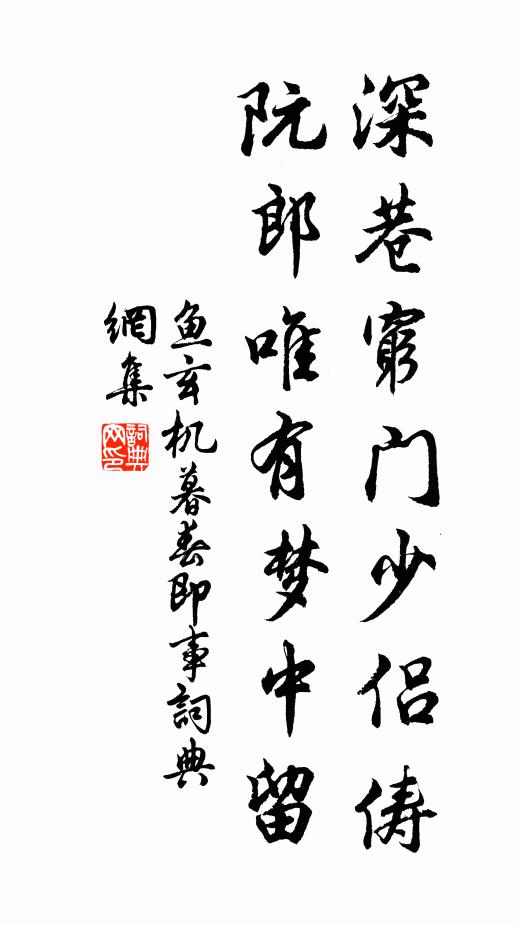 深巷窮门少侣俦
阮郎唯有梦中留
鱼玄机暮春即事詞典
網集
詞典網印